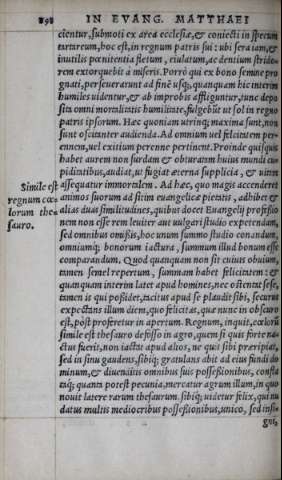 898 IN EVANG. MATTHAEI
cientur, submoti ex area ecclesiæ, & coniecti in specum
tartareum, hoc est, in regnum patris sui: ubi sera iam, &
inutilis pœnitentia fletum, eiulatum, ac dentium strido-
rem extorquebit a miseris. Porrò qui ex bono semine pro
gnati, perseuerarunt ad finē usq;, quanquam hic interim
humiles uidentur, & ab improbis affliguntur, tunc depo
sita omni mortalitatis humilitate, fulgebūt ut sol in regno
patris ipsorum. Hæc quoniam utrinq; maxima sunt, non
sunt oscitanter audienda. Ad omnium uel felicitatem per-
ennem, uel exitium perenne pertinent. Proinde quisquis
habet aurem non surdam & obturatam huius mundi cu-
piditatibus, audiat, ut fugiat æterna supplicia, & uitam
assequatur immortalem. Ad hæc, quo magis accenderet
animos suorum ad studium euangelicæ pietatis, adhibet &
alias duas similitudines, quibus docet Euangelij professio
nem non esse rem leuiter aut uulgari studio expetendam,
sed omnibus omissis, hoc unum summo studio captandum,
omniumq; bonorum iactura, summum illud bonum esse
comparandum. Quod quanquam non sit cuiuis obuium,
tamen semel repertum, summam habet felicitatem: &
quanquam interim latet apud homines, nec ostentat sese,
tamen is qui possidet, tacitus apud se plaudit sibi, securus
expectans illum diem, quo felicitas, quæ nunc in obscuro
est, pòst proferetur in apertum. Regnum, inquit, cœlorū
simile est thesauro defosso in agro, quem si quis forte na-
ctus fuerit, non iactat apud alios, ne quis sibi præripiat,
sed in sinu gaudens, sibiq; gratulans abit ad eius fundi do
minum, & diuenditis omnibus suis possessionibus, confla
taq; quanta potest pecunia, mercatur agrum illum, in quo
nouit latere rarum thesaurum. sibiq; uidetur felix, qui nu
datus multis mediocribus possessionibus, unico, sed insi-
gni,
Simile est
regnum cœ
lorum the-
sauro.